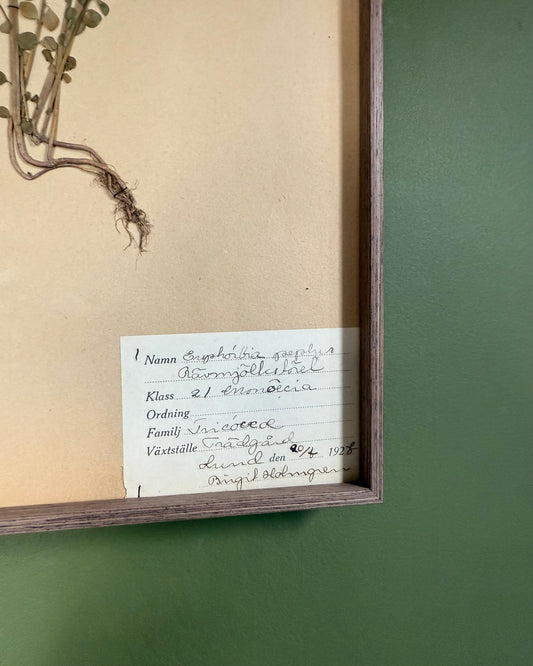 Namn Euphórbia peplus
Rävmjölkstörel
Klass 21 Monoecia
Ordning
Familj Tricóccæ
Växtställe Trädgård
Lund den 20/8 1928
Birgit Holmgren